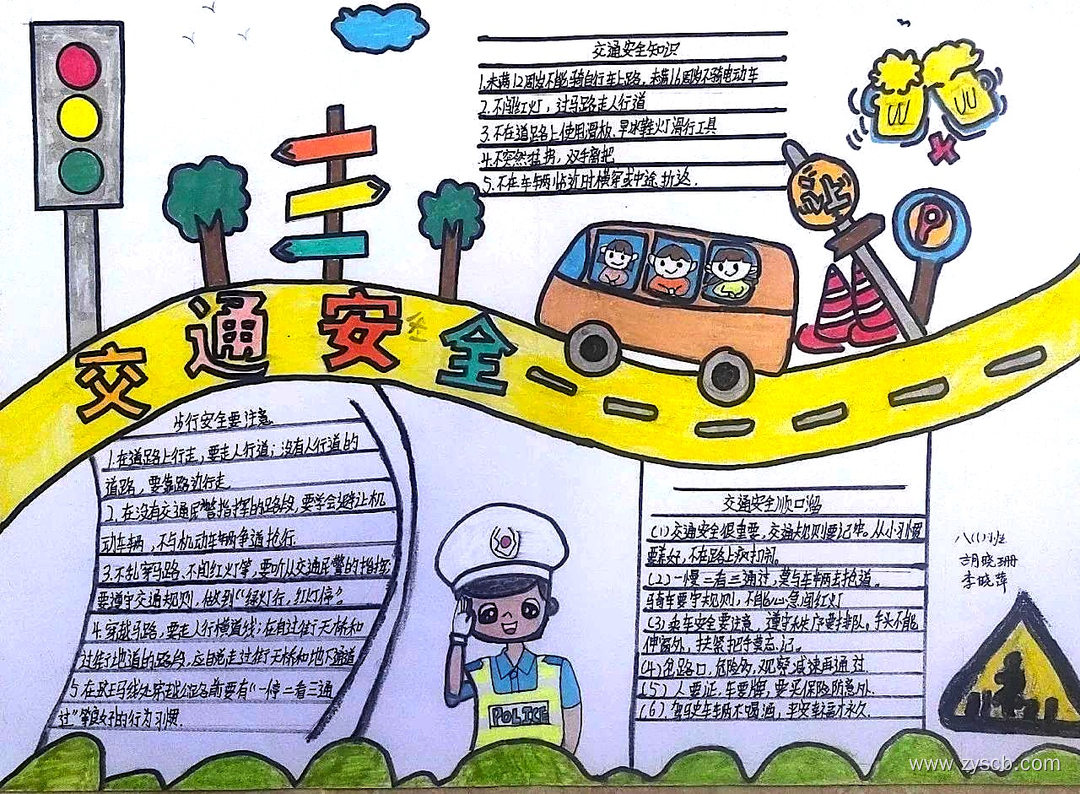 交通安全知识
1.未满12周岁不能骑自行车上路,未满16周岁不骑电动车
2.不闯红灯,过马路走人行道
3.不在道路上使用滑板、旱冰鞋火滑行工具
4.不突然猛拐,双手离把
5.不在车辆临近时横穿或中途折返.
止
交通安全
全
步行安全要注意
1.在道路上行走,要走人行道;没有人行道的
道路,要靠路边行走.
2.在没有交通民警指挥的路段,要学会避让机
动车辆,不与机动车辆争道抢行.
3.不乱穿马路,不闯红灯等,要听从交通民警的指挥
要遵守交通规则,做到“绿灯行,红灯停”。
4.穿越马路,要走人行横道线;在有过街天桥和
过街地道的路段,应自觉走过街天桥和地下通道
5.在斑马线处穿越公路前要有“一停二看三通
过”的良好的行为习惯.
POLICE
交通安全顺口溜
(1)交通安全很重要,交通规则要记牢。从小习惯
要养好,不在路上疯打闹。
(2)一慢二看三通过,莫与车辆去抢道。
骑车要守规则,不能心急闯红灯
(3)乘车安全要注意,遵守秩序要排队。手头不能
伸窗外,扶紧把手莫忘记。
(4)岔路口,危险多,观察减速再通过
(5)人要证,车要牌,要买保险防意外.
(6)驾驶车辆不喝酒,平安幸福才永久.
八(1)班
胡晓珊
李晓萍
www.zyscb.com